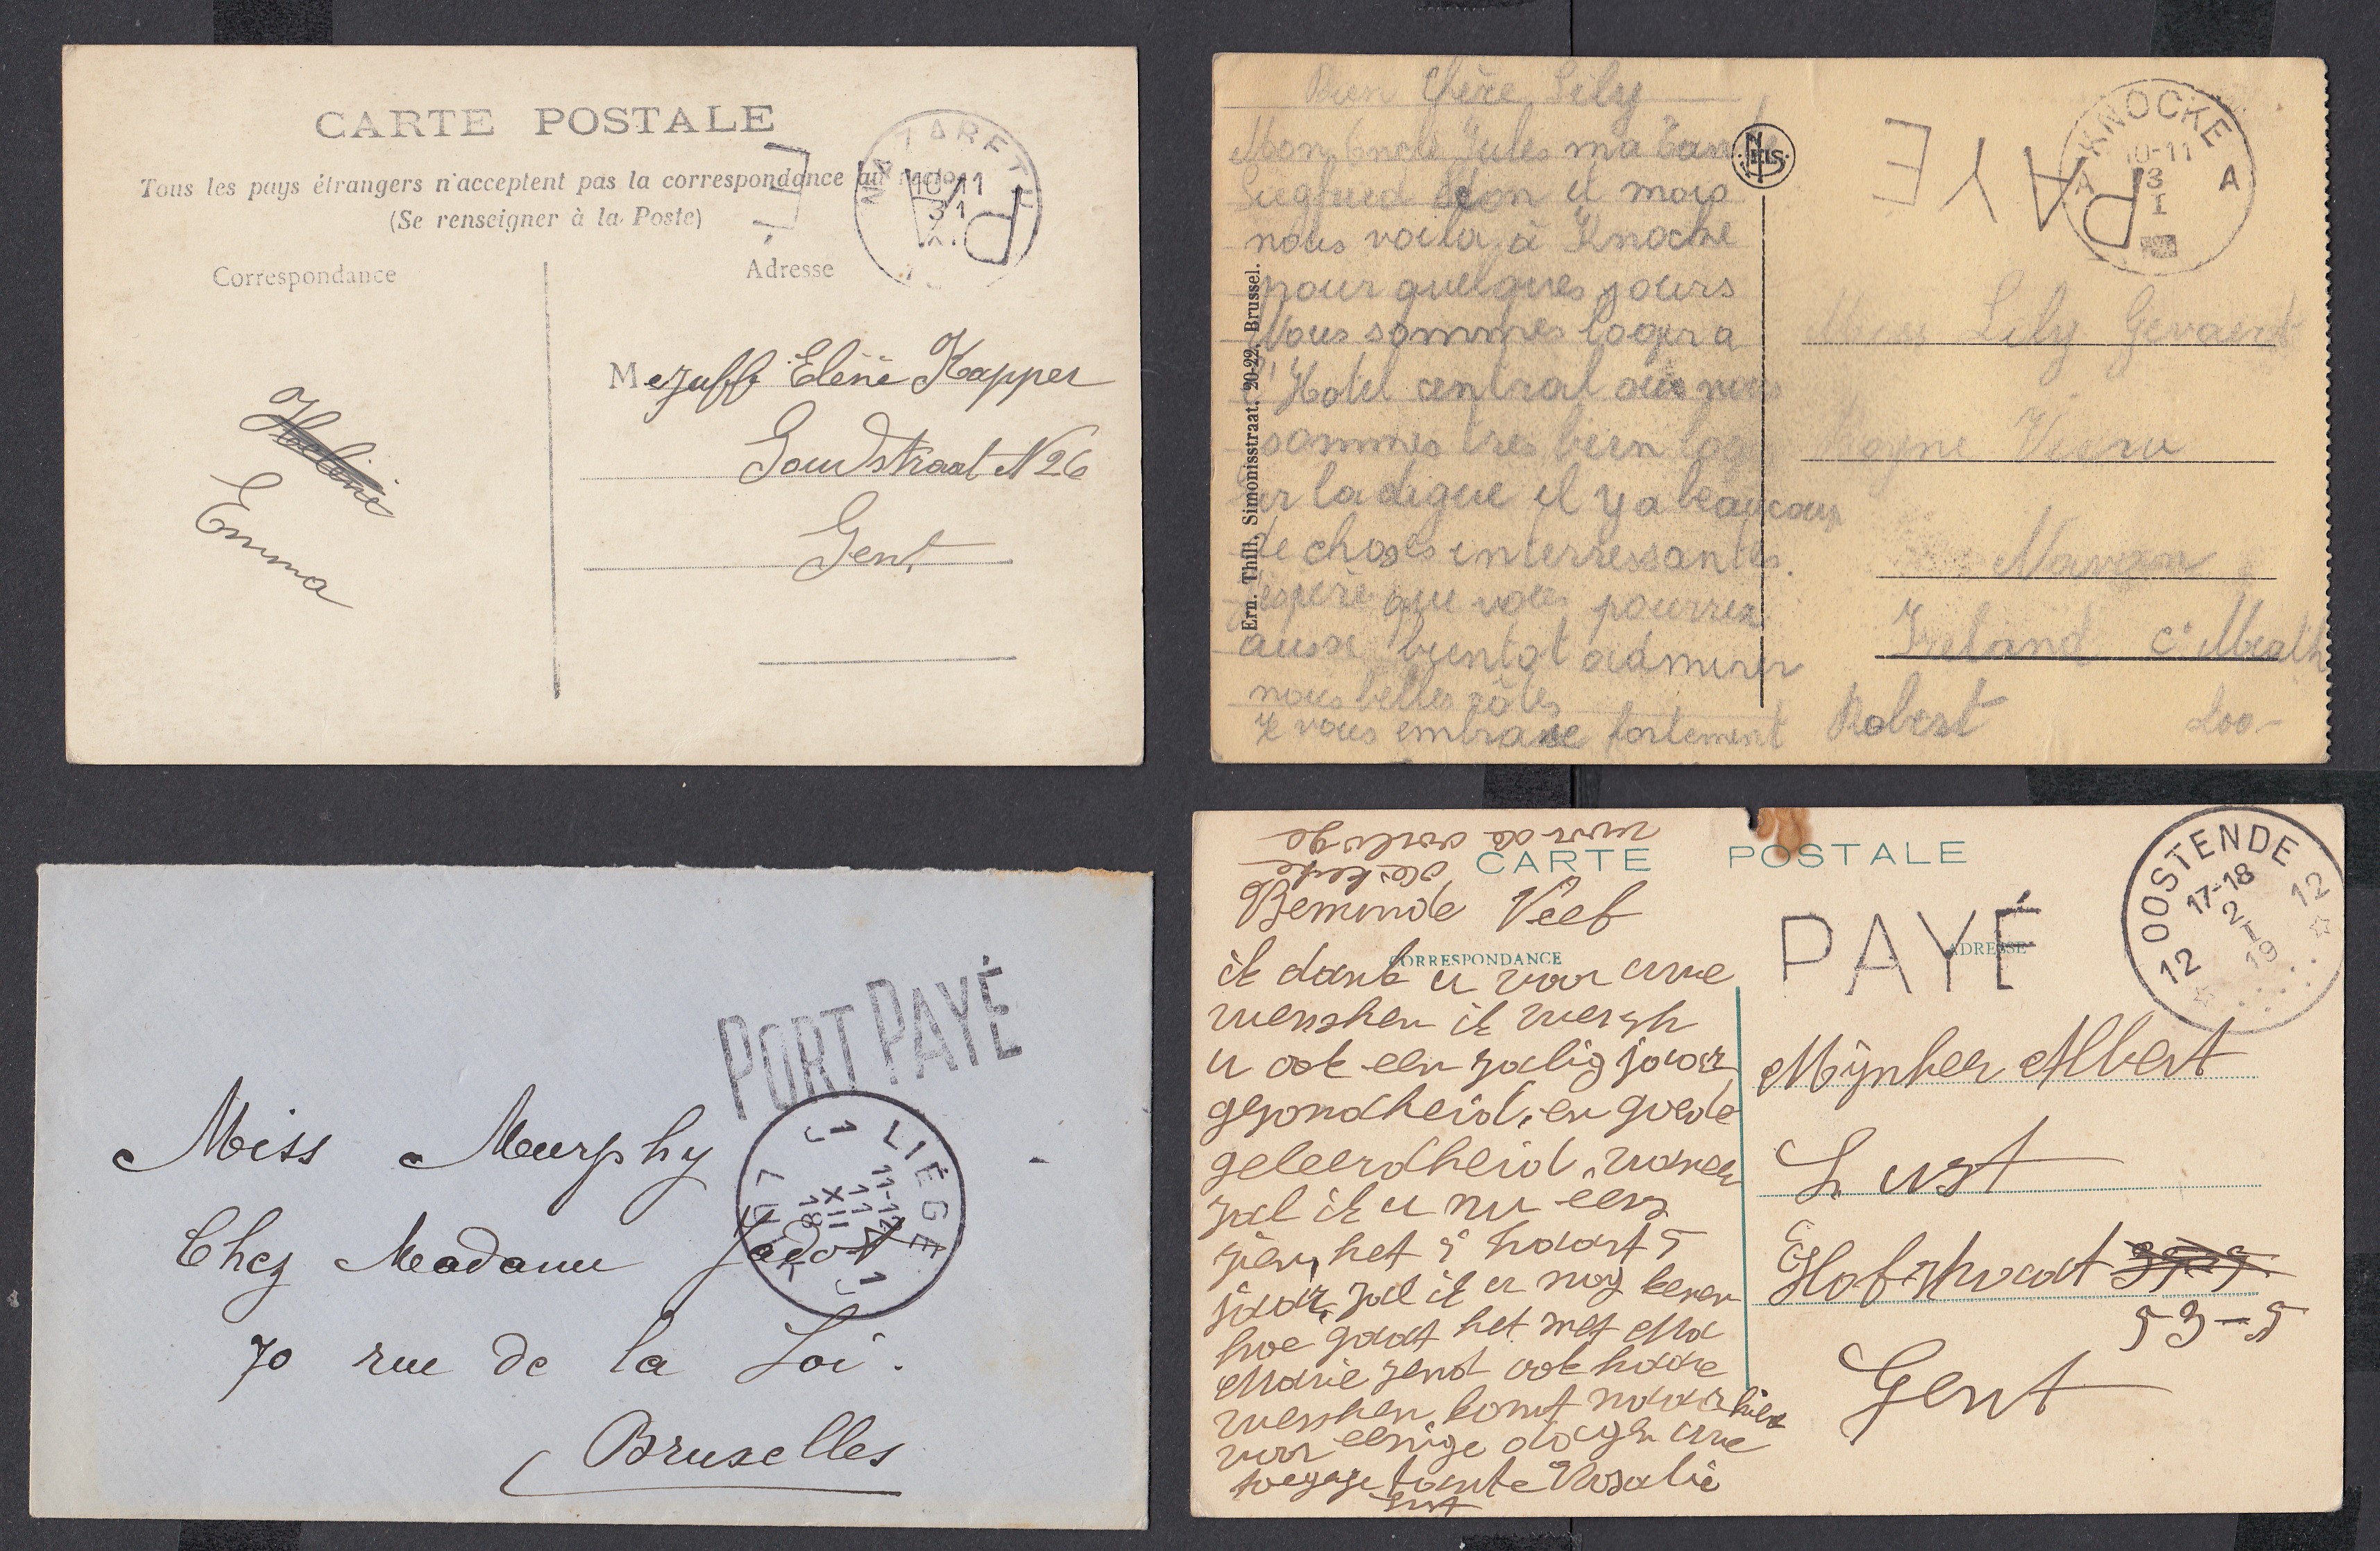 CARTE POSTALE
Tous les pays étrangers n'acceptent pas la correspondance au
(Se renseigner à la Poste)
Correspondance
Adresse
NAZARETH
10-11
3 I
PAYÉ
Mejuff Elené Kapper
Goudstraat N 26
Gent
Emma
Bien Chère Lily
Mon Oncle Jules ma Tante
Siegfried Léon et mois
nous voila à Knocke
pour quelques jours
Nous sommes loger a
l'Hotel central ou nous
sommes tres bien loger
sur la digue il y a beaucoup
de choses interressantes.
J'espère que vous pourrez
aussi bientot admirer
nous belles côtes
Je vous embrasse fortement
Robert
Ern. Thill, Simonisstraat, 20-22, Brussel.
NELS
PAYE
KNOCKE
A A
10-11
3
I
Miss Lily Gevaert
Navan
Ireland Co Meath
PORT PAYÉ
LIÉGE
1J 1J
11-12
11
XII
18
LUIK
Miss Murphy
Chez Madame Jadot
70 rue de la Loi.
Bruxelles
CARTE POSTALE
CORRESPONDANCE
ADRESSE
PAYÉ
OOSTENDE
12 12
17-18
2
I
19
Beminde Neef
ik dank u voor uwe
wenschen ik wensch
u ook een zalig jaar
gezondheid, en goede
geleerdheid, waneer
zal ik u nu eens
zien, het is haast 5
jaar, zal ik u nog kenen
hoe gaat het met Ma
Marie zend ook hare
wenschen, komt naar hier
voor eenige dagen uwe
tante Rosalie
Mijnheer Albert
Lust
Hofstraat
53-5
Gent